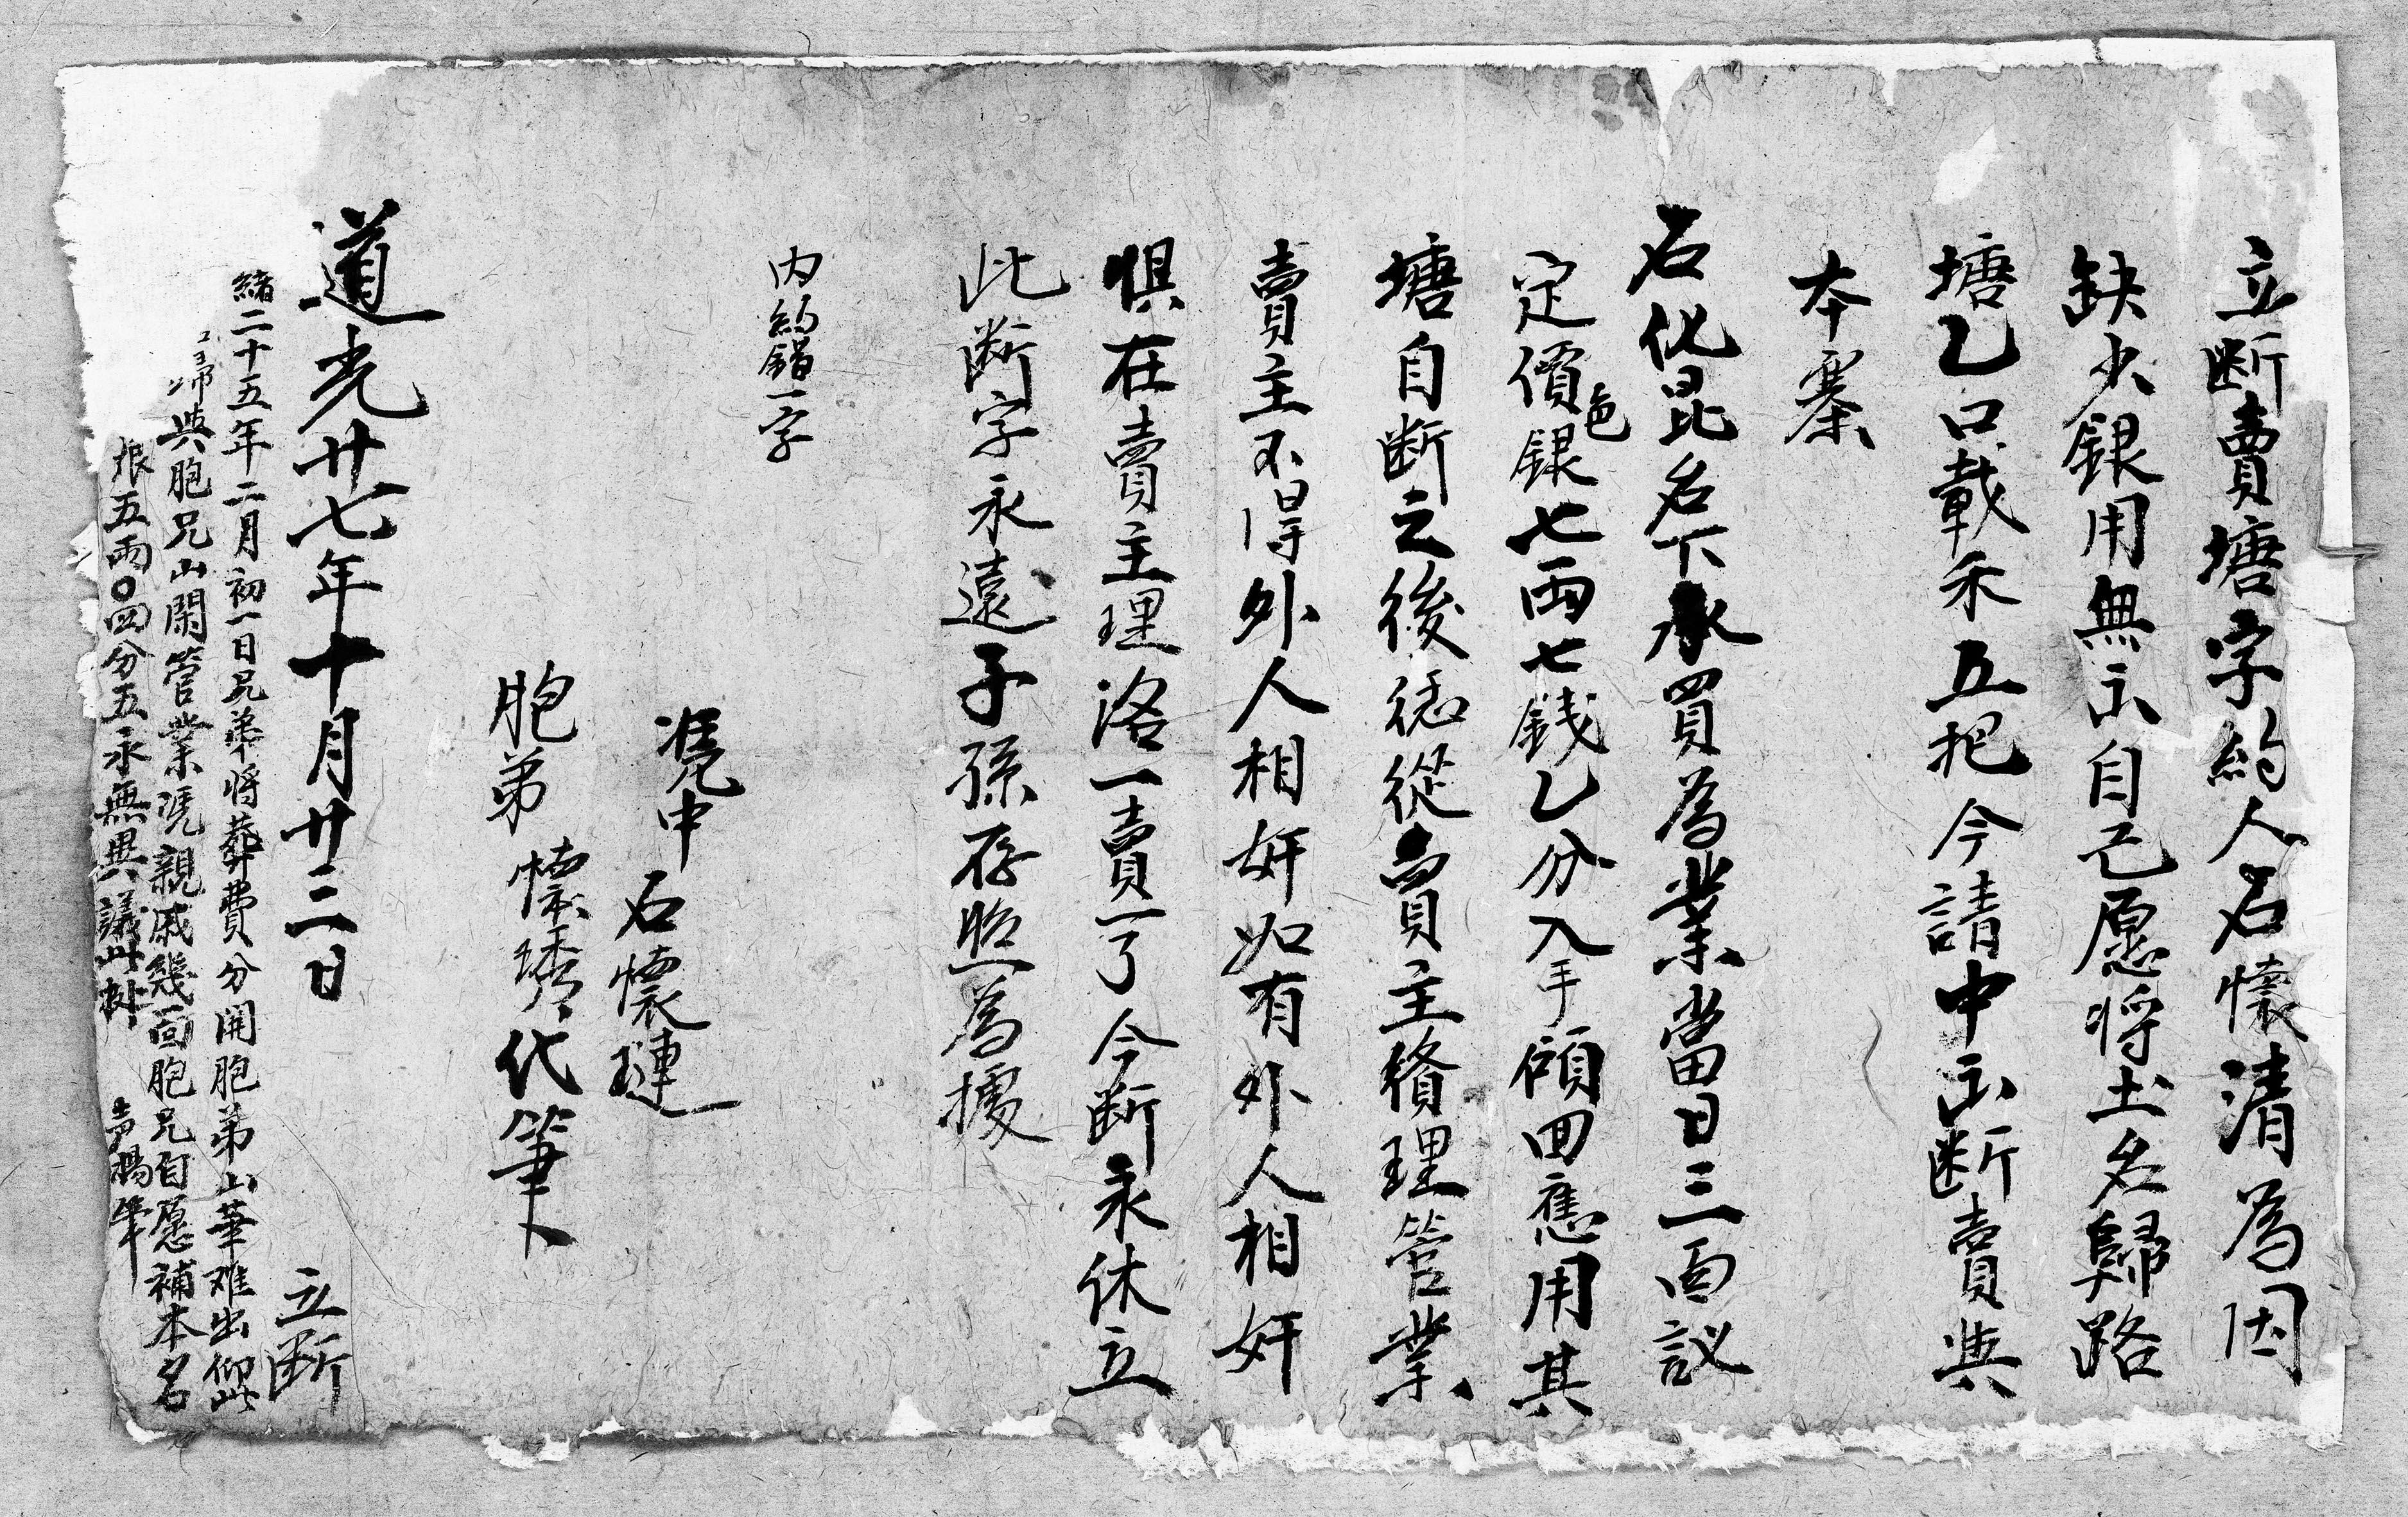 立断賣塘字約人石懷清為因
缺少銀用無示自己愿将土名歸路
塘乙口載禾五把今請中示断賣與
本寨
石化昆名下承買為業當日三面議
定價色銀七兩七錢乙分入手領回應用其
塘自断之後從買主修理管業
賣主不得外人相奸如有外人相奸
俱在賣主理洛一賣一了今断永休立
此断字永遠子孫存照為據
内約錯一字
凭中 石懷璉
胞弟 懷琇代筆
道光廿七年十月廿三日 立断
緒二十五年二月初一日兄弟將葬費分開胞弟山華难出仰此
歸與胞兄山閑管業凴親戚幾面胞兄自愿補本名
艮五兩〇四分五永無異議此批 吉賜筆